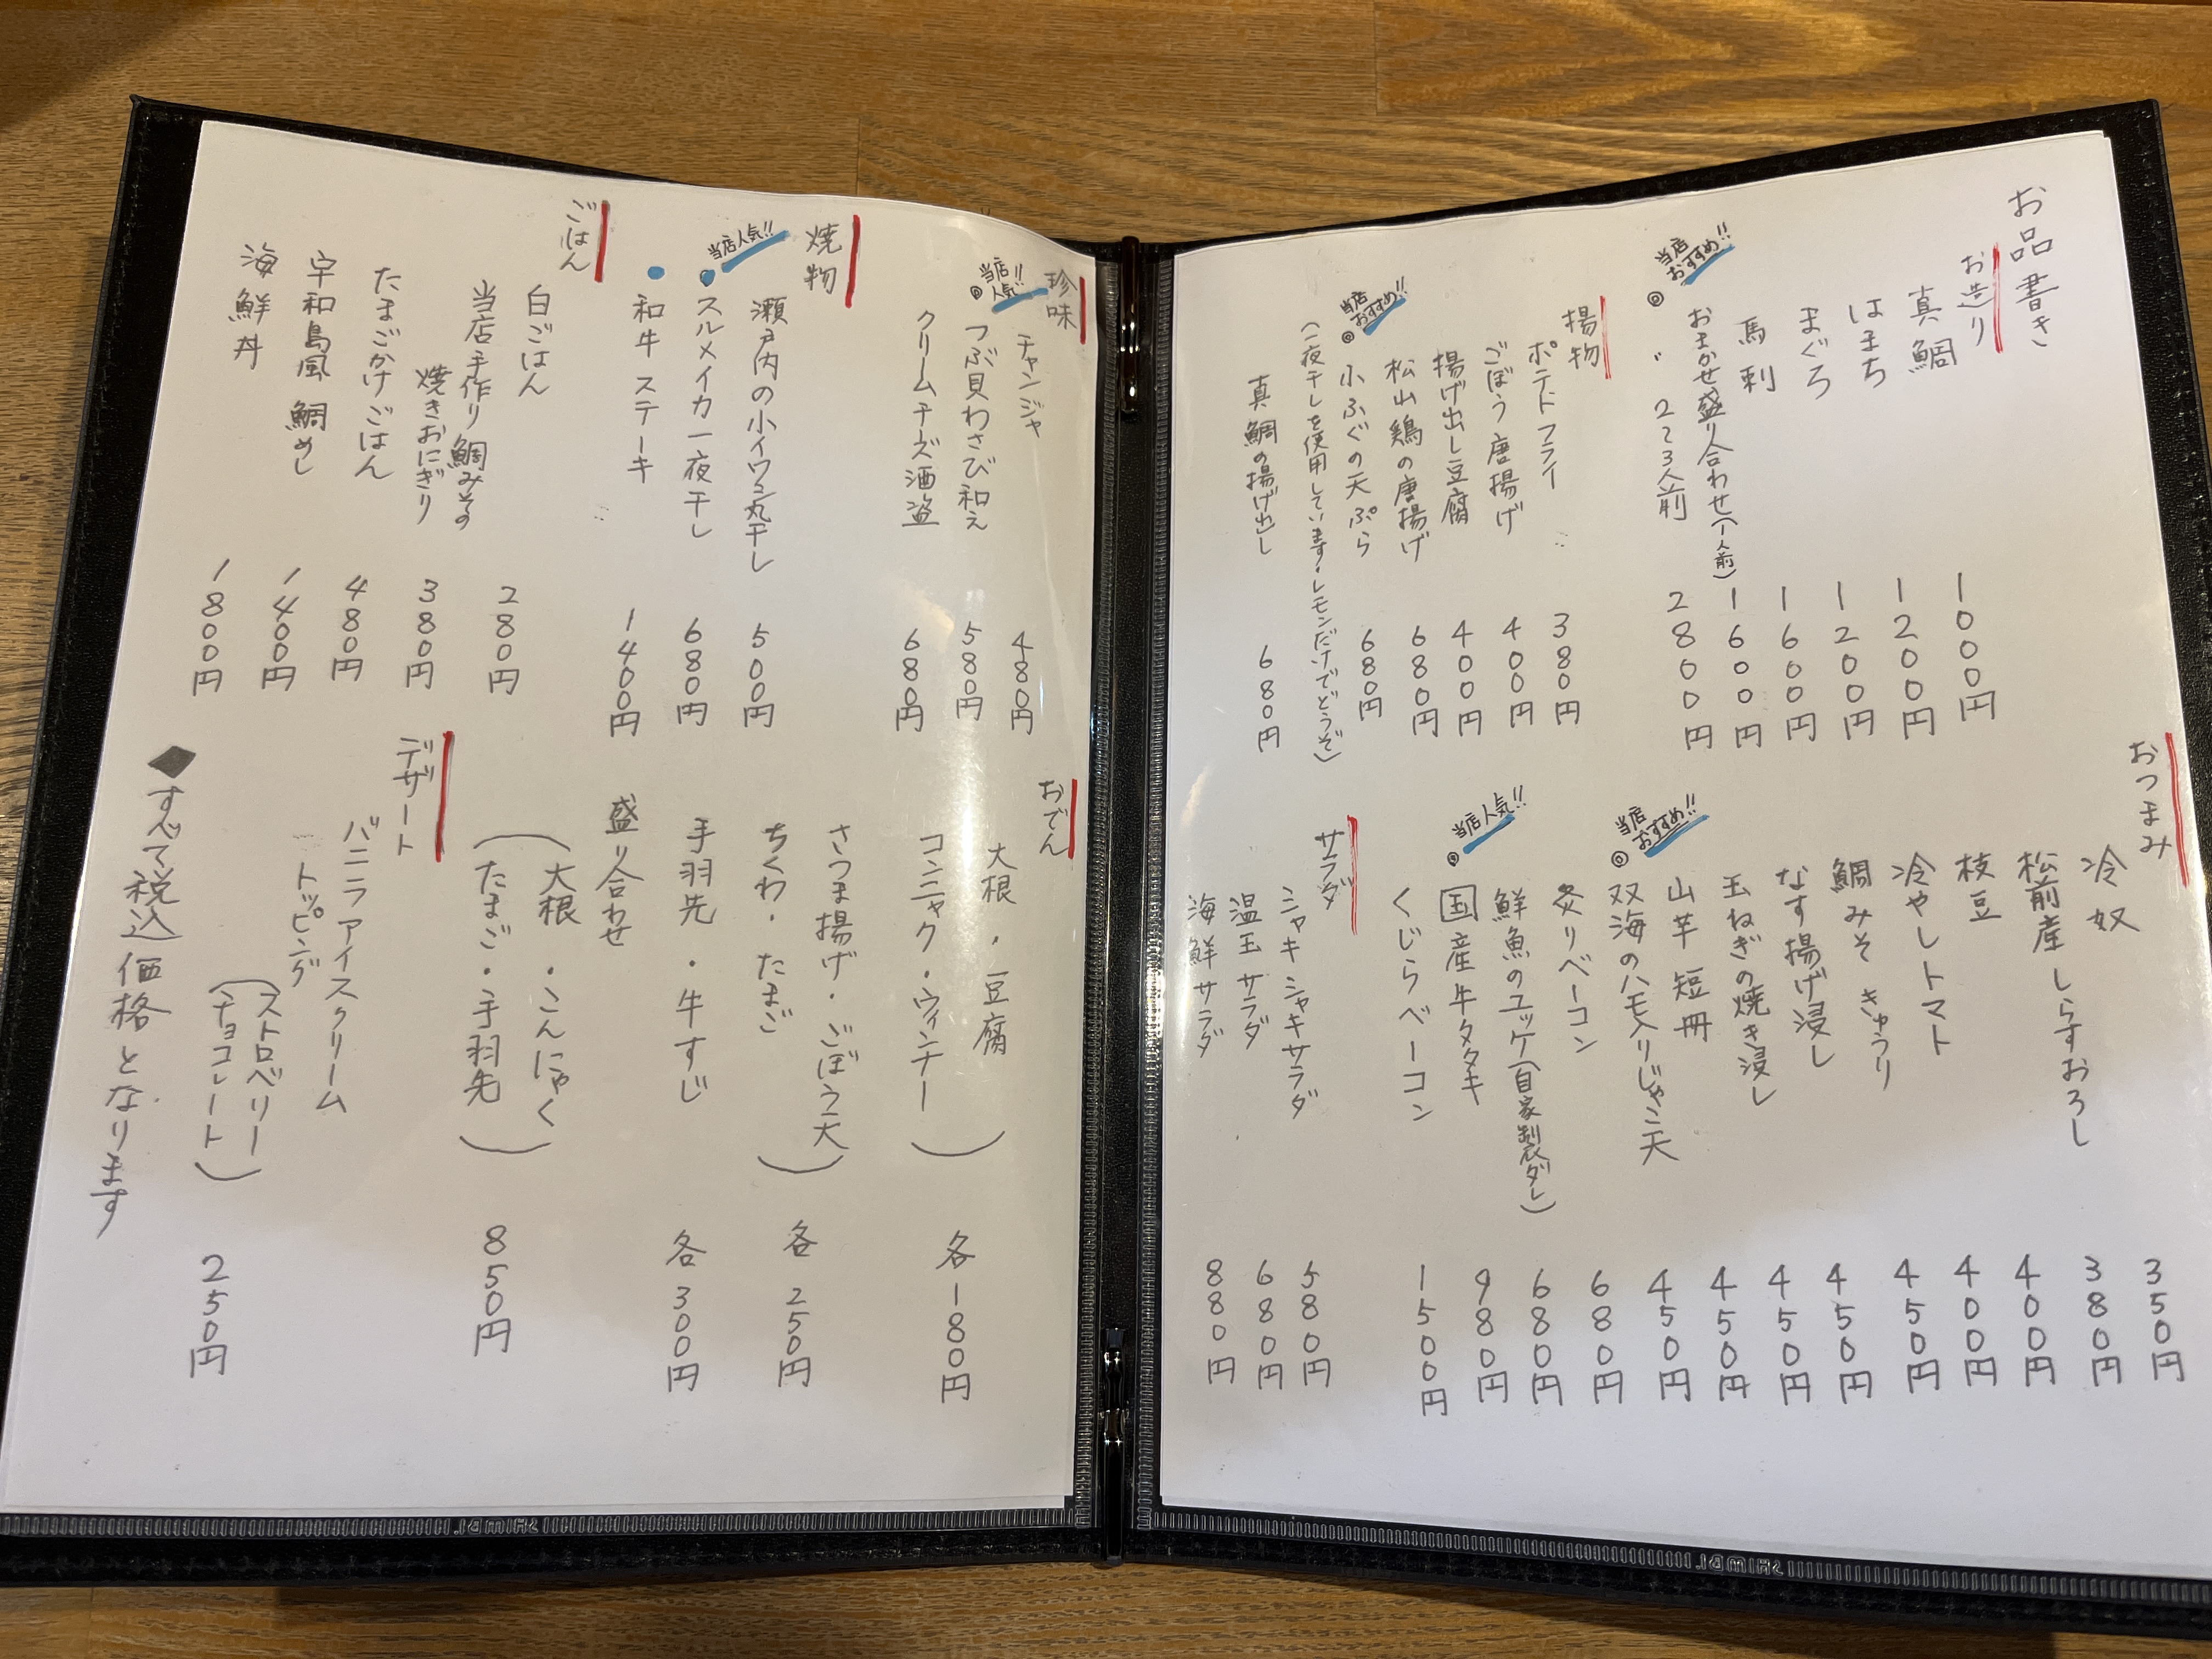 お品書き
お造り
真鯛 1000円
はまち 1200円
まぐろ 1200円
馬刺 1600円
当店おすすめ!!
◎おまかせ盛り合わせ(1人前) 1600円
〃 2〜3人前 2800円
揚物
ポテトフライ 380円
ごぼう唐揚げ 400円
揚げ出し豆腐 400円
松山鶏の唐揚げ 680円
当店おすすめ!!
◎小ふぐの天ぷら 680円
(一夜干しを使用しています・レモンだけでどうぞ)
真鯛の揚げ出し 680円
おつまみ
冷奴 350円
松前産しらすおろし 380円
枝豆 400円
冷やしトマト 400円
鯛みそきゅうり 450円
なす揚げ浸し 450円
玉ねぎの焼き浸し 450円
山芋短冊 450円
当店おすすめ!!
◎双海のハモ入りじゃこ天 450円
炙りベーコン 680円
鮮魚のユッケ(自家製ダレ) 680円
当店人気!!
◎国産牛タタキ 980円
くじらベーコン 1500円
サラダ
シャキシャキサラダ 580円
温玉サラダ 680円
海鮮サラダ 880円
珍味
チャンジャ 480円
当店人気!!
◎つぶ貝わさび和え 580円
クリームチーズ酒盗 680円
焼物
瀬戸内の小イワシ丸干し 500円
当店人気!!
●スルメイカ一夜干し 680円
●和牛ステーキ 1400円
ごはん
白ごはん 280円
当店手作り鯛みその
焼きおにぎり 380円
たまごかけごはん 480円
宇和島風鯛めし 1400円
海鮮丼 1800円
おでん
大根・豆腐
コンニャク・ウィンナー) 各180円
さつま揚げ・ごぼう天
ちくわ・たまご) 各250円
手羽先・牛すじ 各300円
盛り合わせ
(大根・こんにゃく
たまご・手羽先) 850円
デザート
バニラアイスクリーム
トッピング
(ストロベリー
チョコレート) 250円
◆すべて税込価格となります
SHIMBI.
SHIMBI.